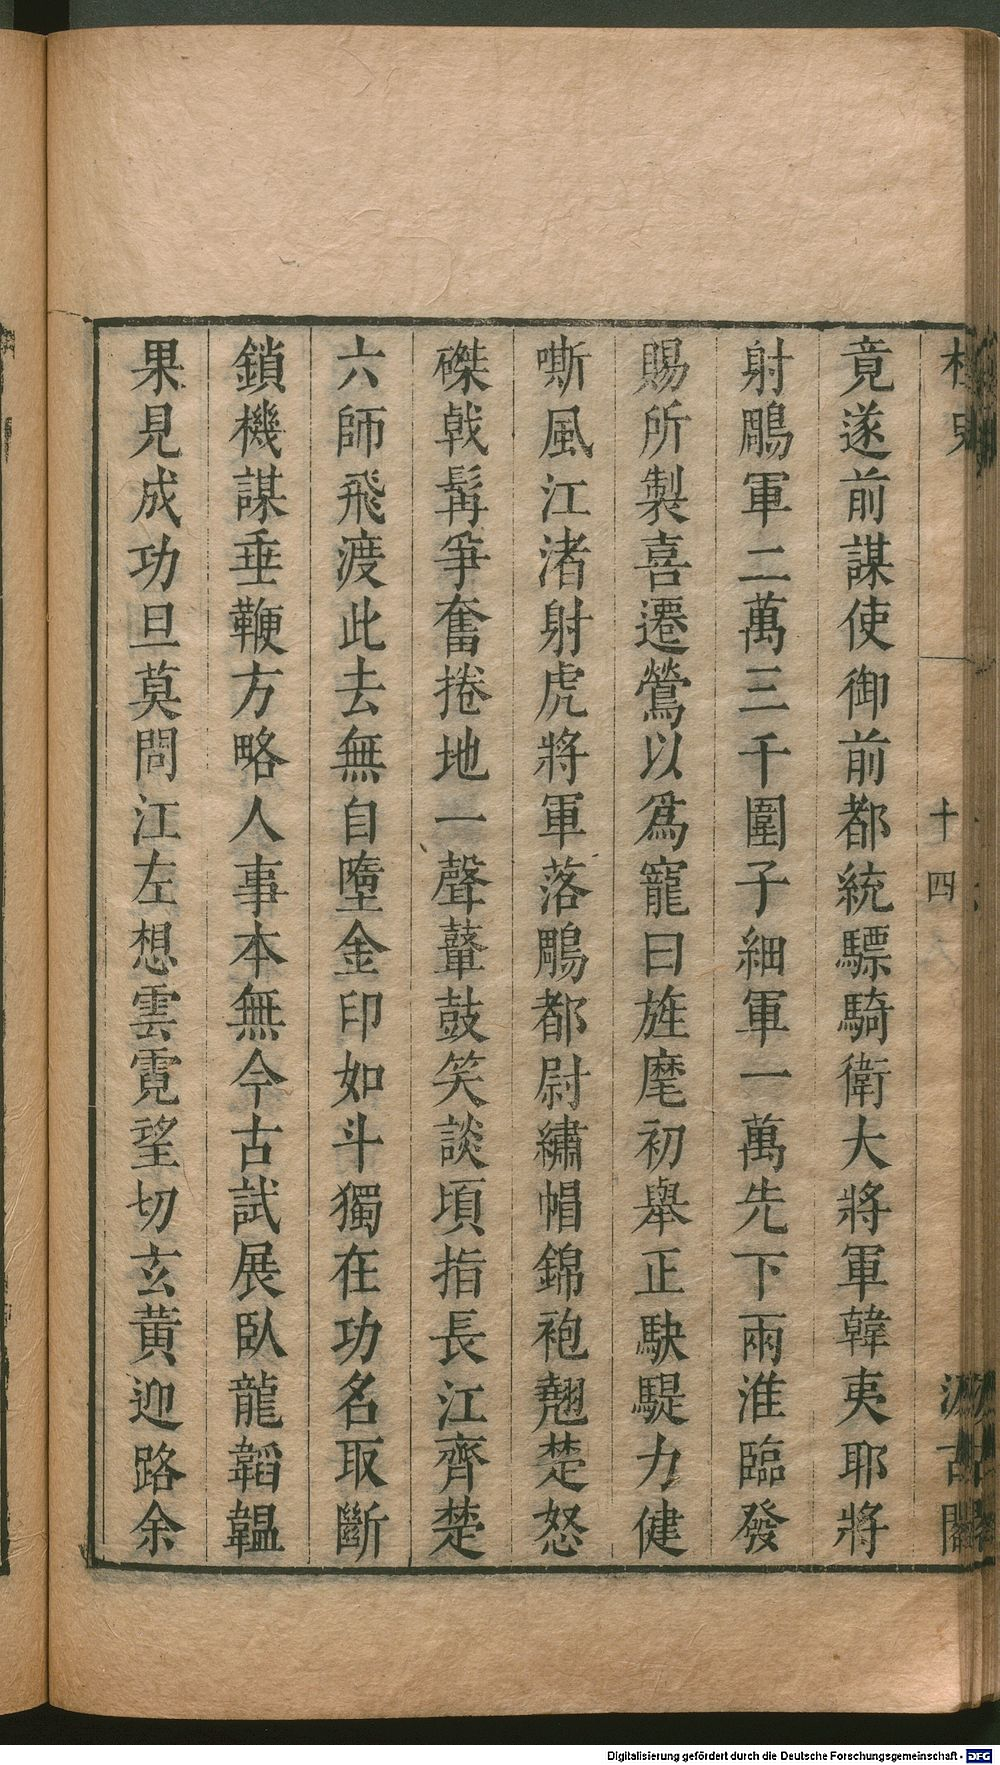 桯史
十四
汲古閣
竟遂前謀使御前都統驃騎衛大將軍韓夷耶將
射鵰軍二萬三千圍子細軍一萬先下兩淮臨發
賜所製喜遷鶯以爲寵曰旌麾初舉正駃騠力健
嘶風江渚射虎將軍落鵰都尉繡帽錦袍翹楚怒
磔戟髯爭奮捲地一聲鼙鼓笑談頃指長江齊楚
六師飛渡此去無自墮金印如斗獨在功名取斷
鎖機謀垂鞭方略人事本無今古試展臥龍韜韞
果見成功旦莫問江左想雲霓望切玄黃迎路余
Digitalisierung gefördert durch die Deutsche Forschungsgemeinschaft - DFG